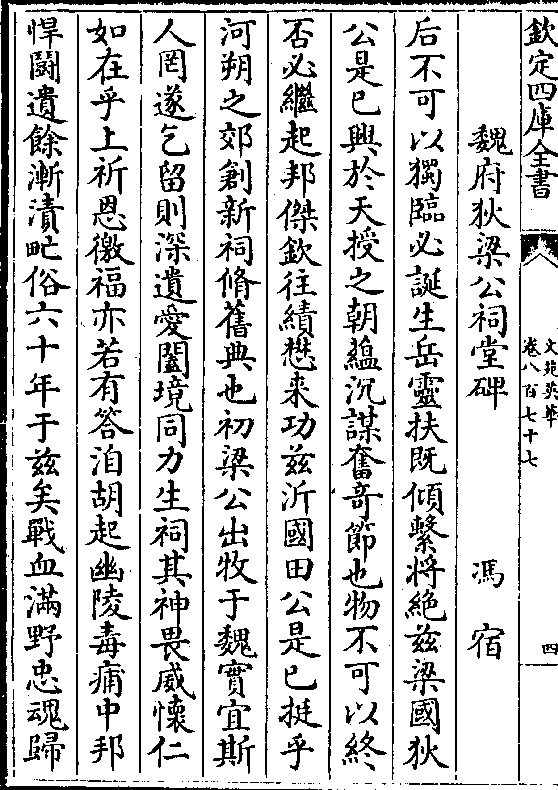 欽定四庫全書
文苑英華
卷八百七十七
四
魏府狄梁公祠堂碑
馮宿
后不可以獨臨必誕生岳靈扶既傾繫將絶兹梁國狄
公是已興於天授之朝蘊沉謀奮竒節也物不可以終
否必繼起邦傑欽往績懋来功兹沂國田公是已挺乎
河朔之郊創新祠脩舊典也初梁公出牧于魏實宜斯
人罔遂乞留則深遺愛闔境同力生祠其神畏威懐仁
如在乎上祈恩徼福亦若有答洎胡起幽陵毒痡中邦
悍鬬遺餘漸漬甿俗六十年于兹矣戰血滿野忠魂歸